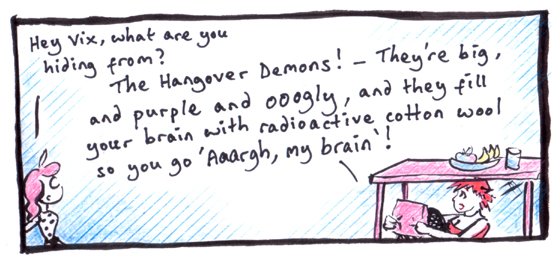 Hey Vix, what are you
hiding from?
The Hangover Demons! - They're big,
and purple and ooogly, and they fill
your brain with radioactive cotton wool
so you go 'Aaargh, my brain'!